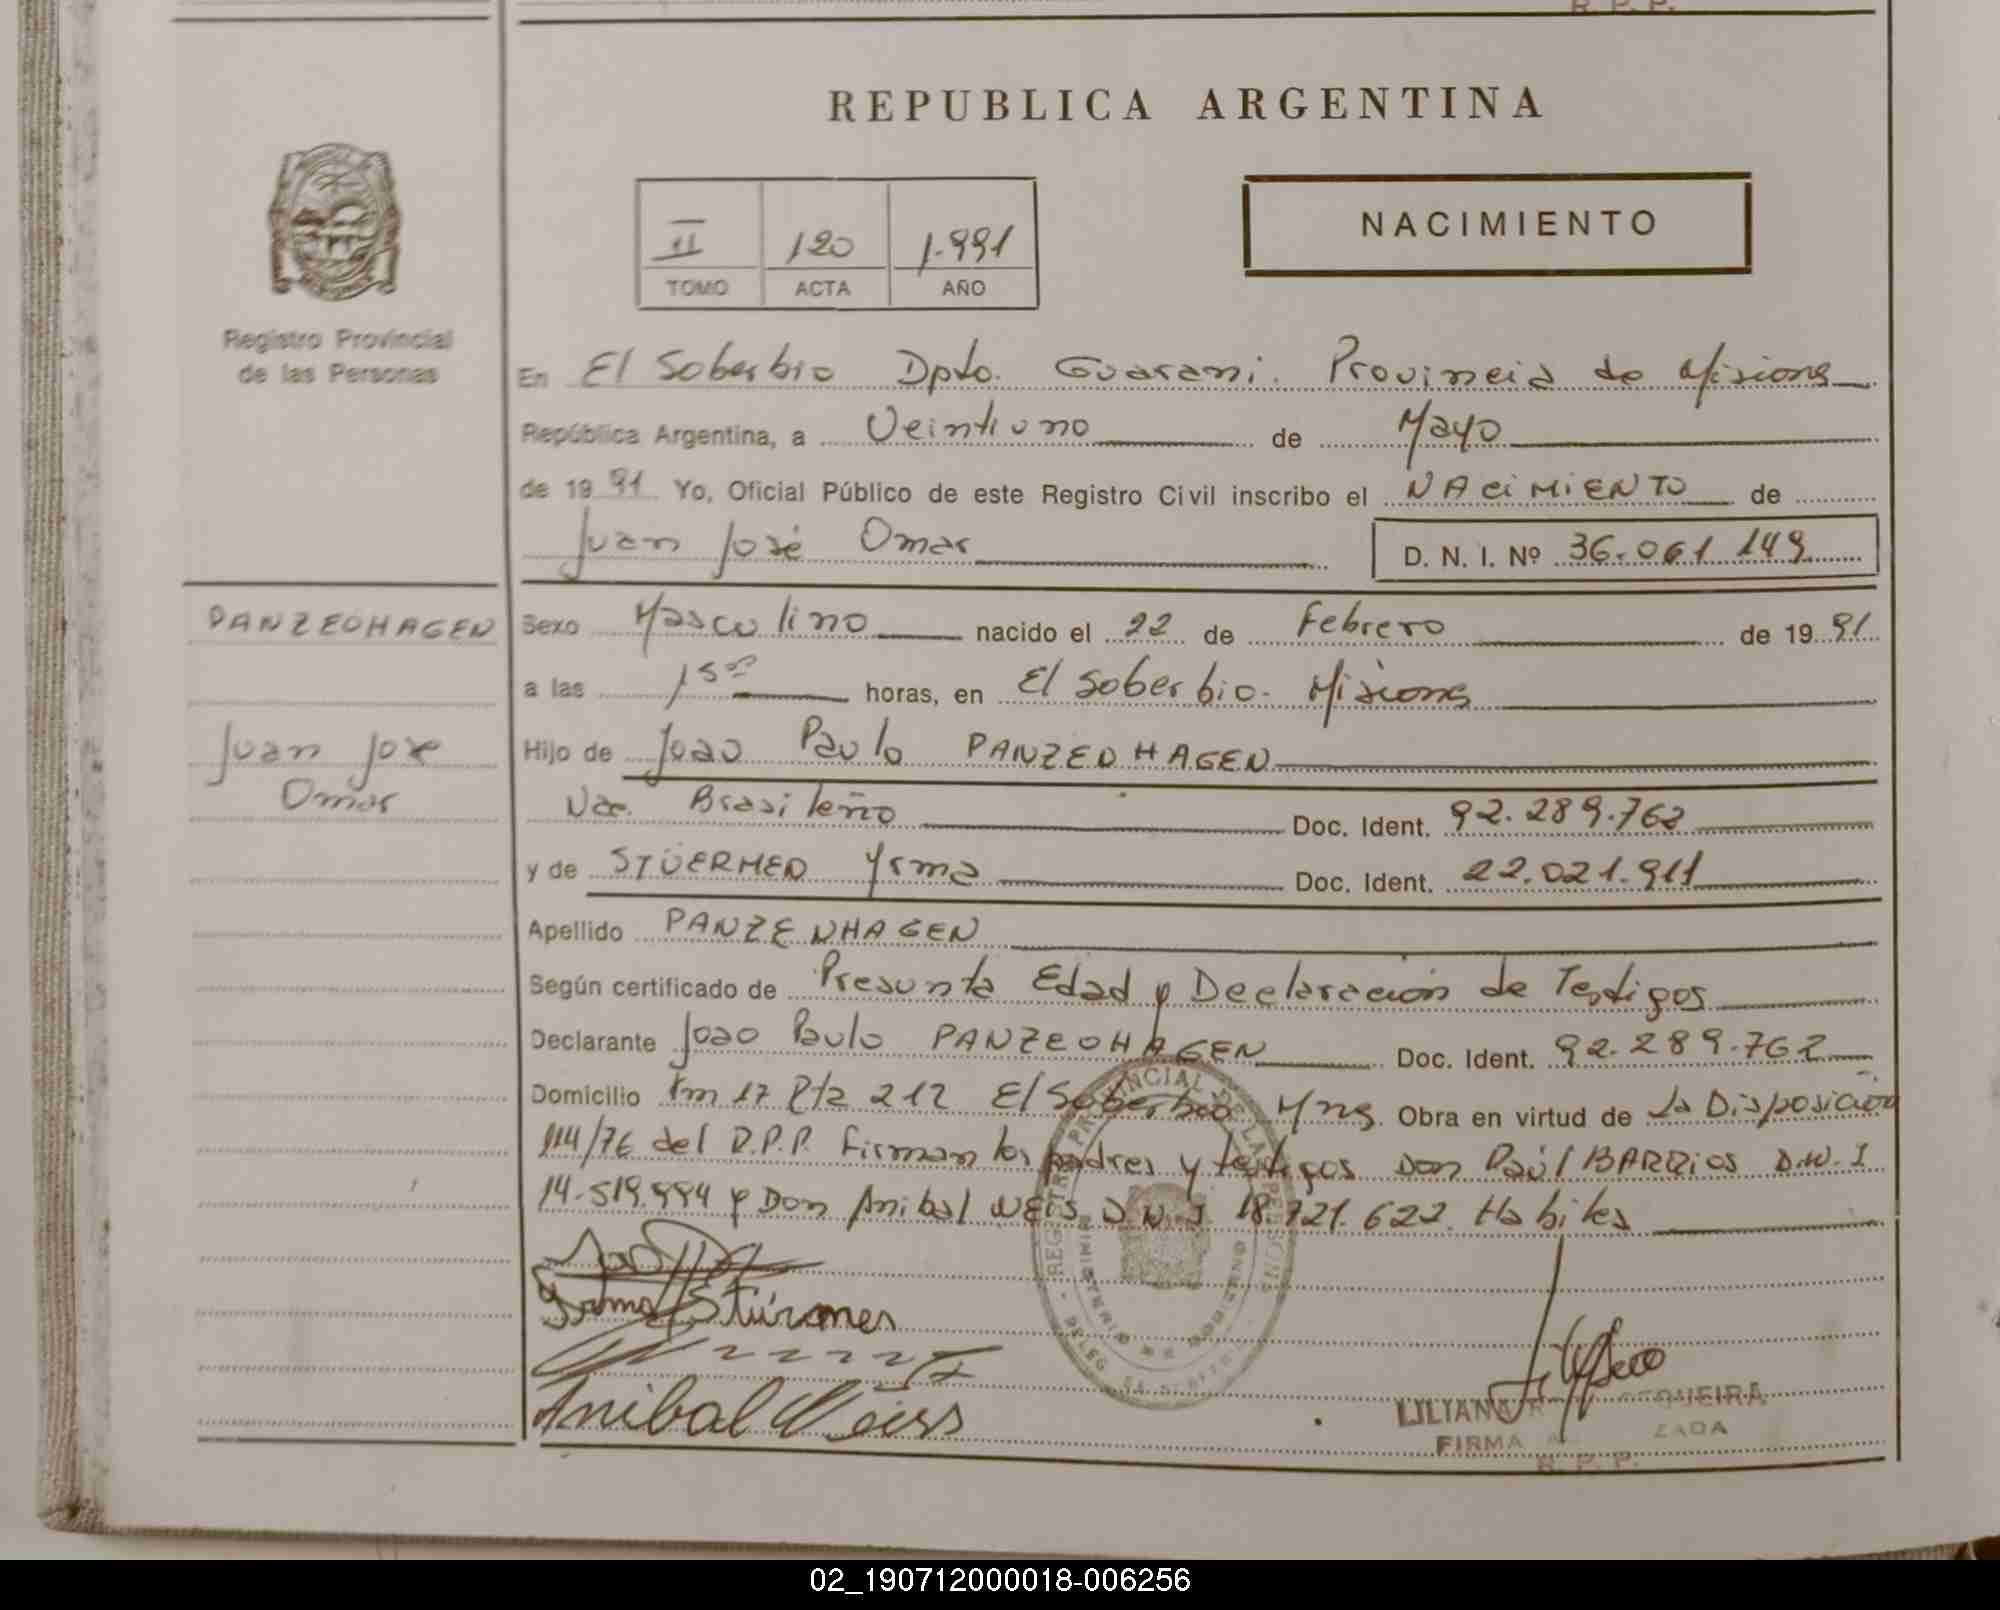 R. P. P.
REPUBLICA ARGENTINA
II 120 1.991
TOMO ACTA AÑO
NACIMIENTO
Registro Provincial
de las Personas
En El Soberbio Dpto. Guarani. Provincia de Misiones
República Argentina, a Veintiuno de Mayo
de 19 91 Yo, Oficial Público de este Registro Civil inscribo el NACIMIENTO de
Juan José Omar D. N. I. Nº 36.061.149
PANZENHAGEN
Juan Jose
Omar
Sexo Masculino nacido el 22 de Febrero de 19 91
a las 15 horas, en El Soberbio. Misiones
Hijo de Joao Paulo PANZENHAGEN
Nac. Brasileño Doc. Ident. 92.289.762
y de STÜERMER Yrma Doc. Ident. 22.021.911
Apellido PANZENHAGEN
Según certificado de Presunta Edad y Declaración de Testigos
Declarante Joao Paulo PANZENHAGEN Doc. Ident. 92.289.762
Domicilio Km 17 Rta 212 El Soberbio Mnes. Obra en virtud de La Disposición
114/76 del R.P.P. Firman los padres y testigos Don Raúl BARRIOS D.N.I
14.519.994 y Don Anibal WEIS D N I 18.721.622. Habiles
Yrma Stürmer
Anibal Weiss
REGISTRO PROVINCIAL DE LAS PERSONAS
MINISTERIO DE GOBIERNO
DELEG
LILIANA SEQUEIRA
FIRMA
R. P. P.
02_190712000018-006256